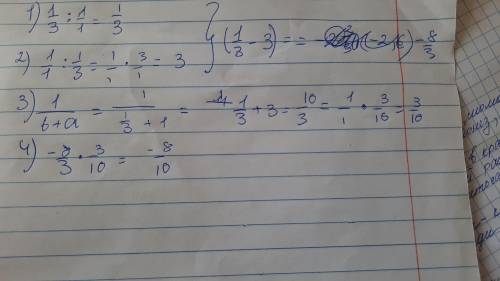 1) 1/3 : 1/1 = 1/3
2) 1/1 : 1/3 = 1/1 · 3/1 = 3 } (1/3 - 3) = = - 8/3
3) 1/(b+a) = 1/(1/3 + 1) = 1/3 + 3 = 10/3 = 1/1 · 3/10 = 3/10
4) -8/3 · 3/10 = -8/10